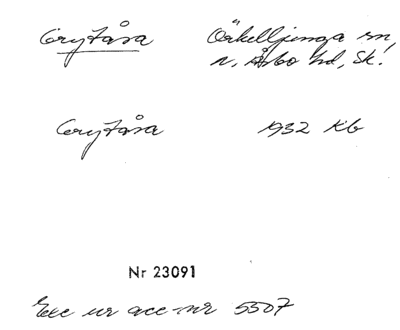 Grytåsa Örkelljunga sn,
n. Åsbo hd, Sk.
Grytåsa 1932 Kb
Nr 23091
Exc ur acc nr 5507